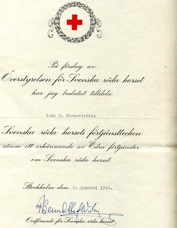 På förslag av
Överstyrelsen för Svenska röda korset
har jag beslutat tilldela
Svenska röda korsets förtjänsttecken
såsom ett erkännande av Edra förtjänster
om Svenska röda korset.
Stockholm den
januari
Ordförande för Svenska röda korset